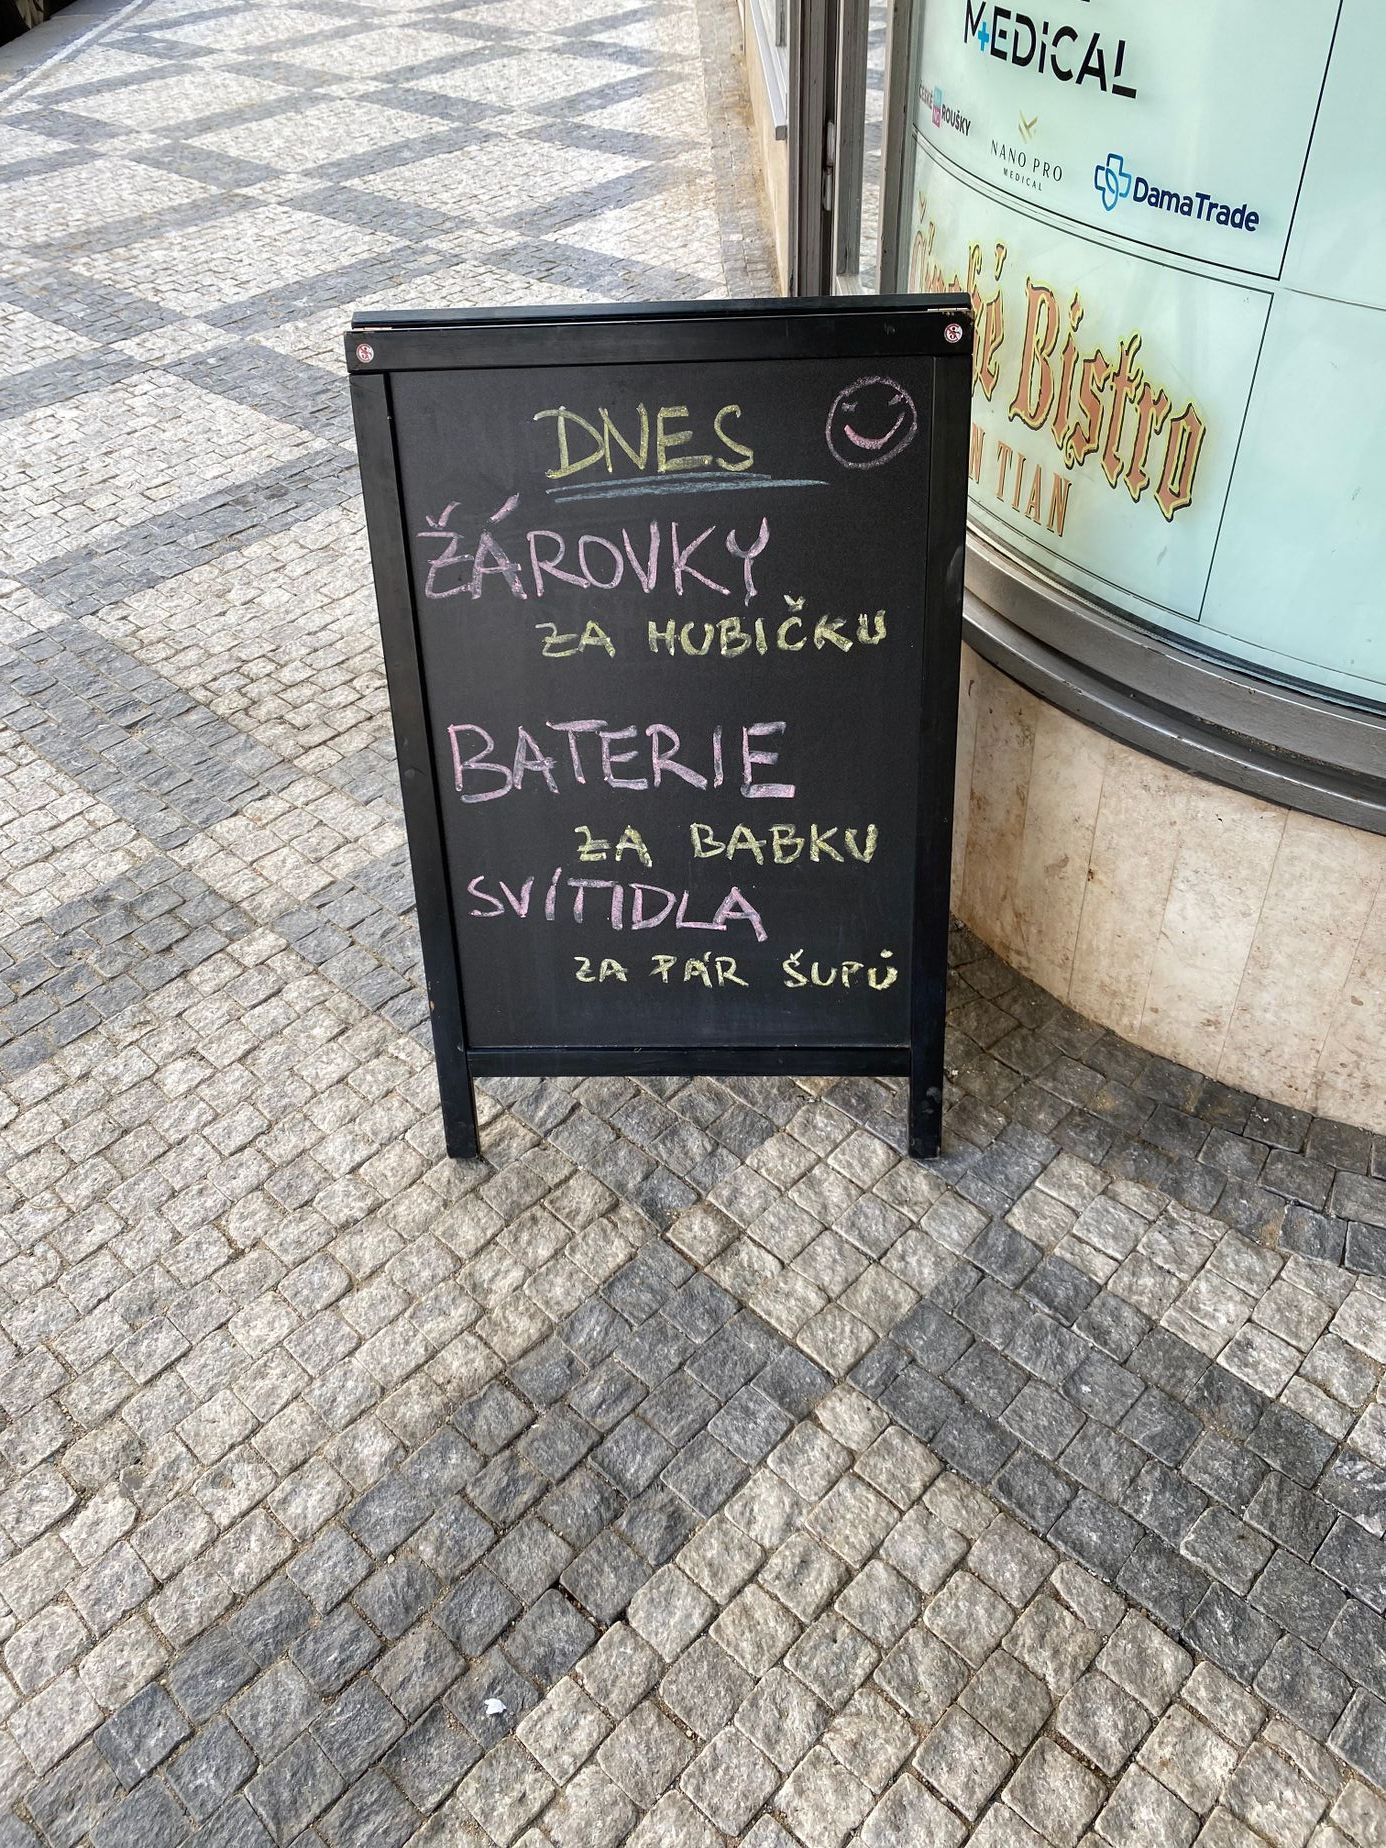 MEDICAL
ČESKÉ ROUŠKY
NANO PRO
MEDICAL
DamaTrade
Bistro
TIAN
DNES
ŽÁROVKY
ZA HUBIČKU
BATERIE
ZA BABKU
SVÍTIDLA
ZA PÁR ŠUPŮ